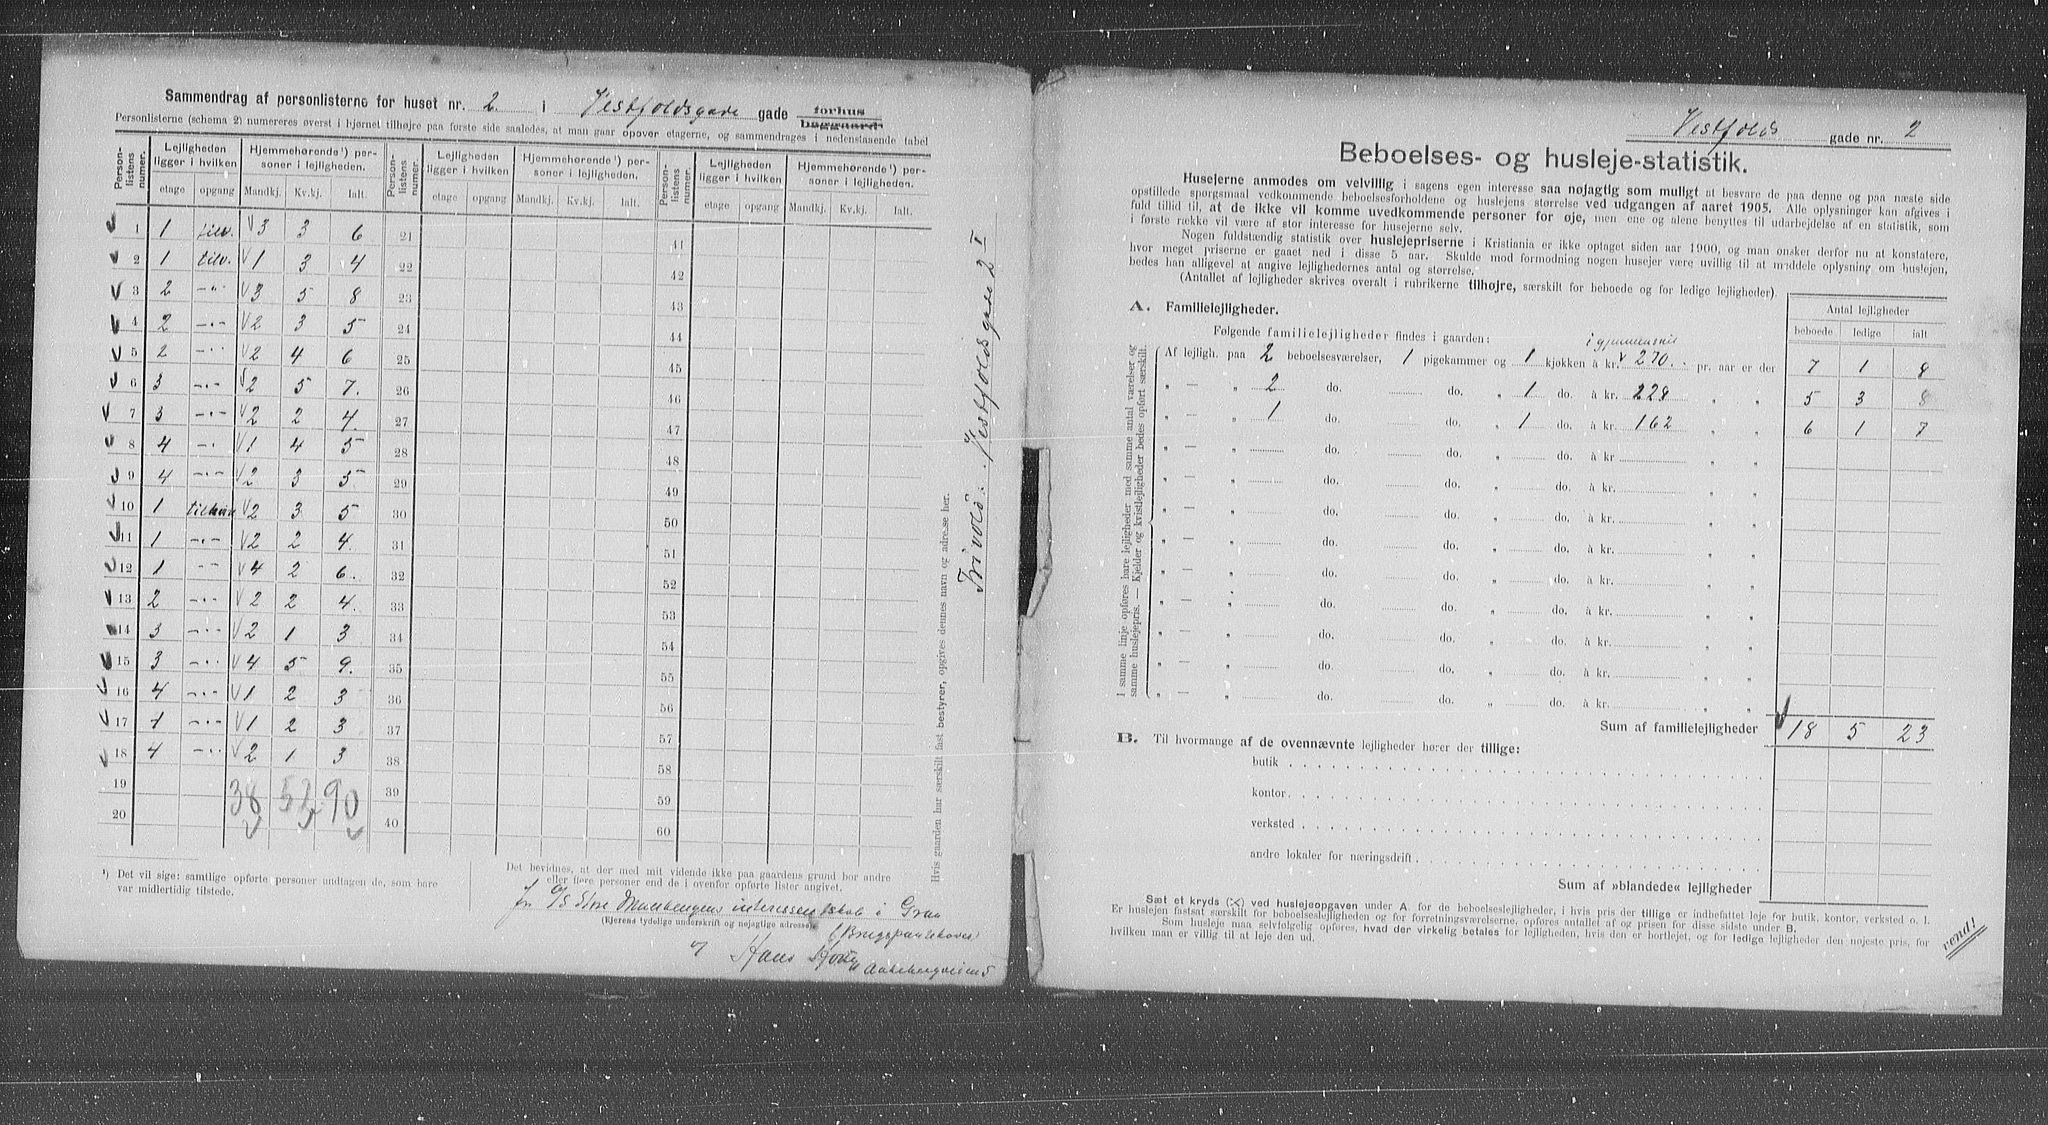 Sammendrag af personlisterne for huset nr. 2. i Vestfoldsgade gade forhus baggaard
Personlisterne (schema 2) numereres øverst i hjørnet tilhøjre paa første side saaledes, at man gaar opover etagerne, og sammendrages i nedenstaaende tabel
Person-listens numer. Lejligheden ligger i hvilken Hjemmehørende¹) personer i lejligheden. Person-listens numer. Lejligheden ligger i hvilken Hjemmehørende¹) personer i lejligheden. Person-listens numer. Lejligheden ligger i hvilken Hjemmehørende¹) personer i lejligheden.
etage opgang Mandkj. Kv.kj. Ialt. etage opgang Mandkj. Kv.kj. Ialt. etage opgang Mandkj. Kv.kj. Ialt.
1 1 tilv. 3 3 6 21 41
2 1 tilv. 1 3 4 22 42
3 2 -"- 3 5 8 23 43
4 2 -"- 2 3 5 24 44
5 2 -"- 2 4 6 25 45
6 3 -"- 2 5 7. 26 46
7 3 -"- 2 2 4. 27 47
8 4 -"- 1 4 5 28 48
9 4 -"- 2 3 5 29 49
10 1 2 3 5 30 50
11 1 -"- 2 2 4. 31 51
12 1 -"- 4 2 6. 32 52
13 2 -"- 2 2 4. 33 53
14 3 -"- 2 1 3 34 54
15 3 -"- 4 5 9. 35 55
16 4 -"- 1 2 3 36 56
17 -"- 1 2 3 37 57
18 4 -"- 2 1 3 38 58
19 38 52 90 39 59
20 40 60
¹) Det vil sige: samtlige opførte personer undtagen de, som bare
var midlertidig tilstede.
Det bevidnes, at der med mit vidende ikke paa gaardens grund bor andre
eller flere personer end de i ovenfor opførte lister angivet.
interessentskab i Gran
(Ejerens tydelige underskrift og nøjagtige adresse)
Hans
Hvis gaarden har særskilt fast bestyrer, opgives dennes navn og adresse her.
Vestfoldsgade 2 I
Vestfolds gade nr. 2
Beboelses- og husleje-statistik.
Husejerne anmodes om velvillig i sagens egen interesse saa nøjagtig som muligt at besvare de paa denne og paa næste side
opstillede spørgsmaal vedkommende beboelsesforholdene og huslejens størrelse ved udgangen af aaret 1905. Alle oplysninger kan afgives i
fuld tillid til, at de ikke vil komme uvedkommende personer for øje, men ene og alene benyttes til udarbejdelse af en statistik, som
i første række vil være af stor interesse for husejerne selv.
Nogen fuldstændig statistik over huslejepriserne i Kristiania er ikke optaget siden aar 1900, og man ønsker derfor nu at konstatere,
hvor meget priserne er gaaet ned i disse 5 aar. Skulde mod formodning nogen husejer være uvillig til at meddele oplysning om huslejen,
bedes han alligevel at angive lejlighedernes antal og størrelse.
(Antallet af lejligheder skrives overalt i rubrikerne tilhøjre, særskilt for beboede og for ledige lejligheder).
A. Familielejligheder.
Antal lejligheder
Følgende familielejligheder findes i gaarden:
beboede ledige ialt
i gjennemsnit
Af lejligh. paa 2 beboelsesværelser, 1 pigekammer og 1 kjøkken à kr. 270. pr. aar er der 7 1 8
" — " 2 do. do. " 1 do. à kr. 228 " " 5 3 8
" — " 1 do. do. " 1 do. à kr. 162 " " 6 1 7
" — " do. do. " do. à kr. " "
" — " do. do. " do. à kr. " "
" — " do. do. " do. à kr. " "
" — " do. do. " do. à kr. " "
" — " do. do. " do. à kr. " "
" — " do. do. " do. à kr. " "
" — " do. do. " do. à kr. " "
" — " do. do. " do. à kr. " "
" — " do. do. " do. à kr. " "
I samme linje opføres bare lejligheder med samme antal værelser og
samme huslejepris. — Kjelder og kvistlejligheder bedes opført særskilt.
Sum af familielejligheder 18 5 23
B. Til hvormange af de ovennævnte lejligheder hører der tillige:
butik
kontor
verksted
andre lokaler for næringsdrift
Sum af »blandede« lejligheder
Sæt et kryds (×) ved huslejeopgaven under A. for de beboelseslejligheder, i hvis pris der tillige er indbefattet leje for butik, kontor, verksted o. l.
Er huslejen fastsat særskilt for beboelseslejligheden og for forretningsværelserne, opføres antallet af og prisen for disse sidste under B.
Som husleje maa selvfølgelig opføres, hvad der virkelig betales for lejligheden, hvis den er bortlejet, og for ledige lejligheder den nøjeste pris, for
hvilken man er villig til at leje den ud.
vend!